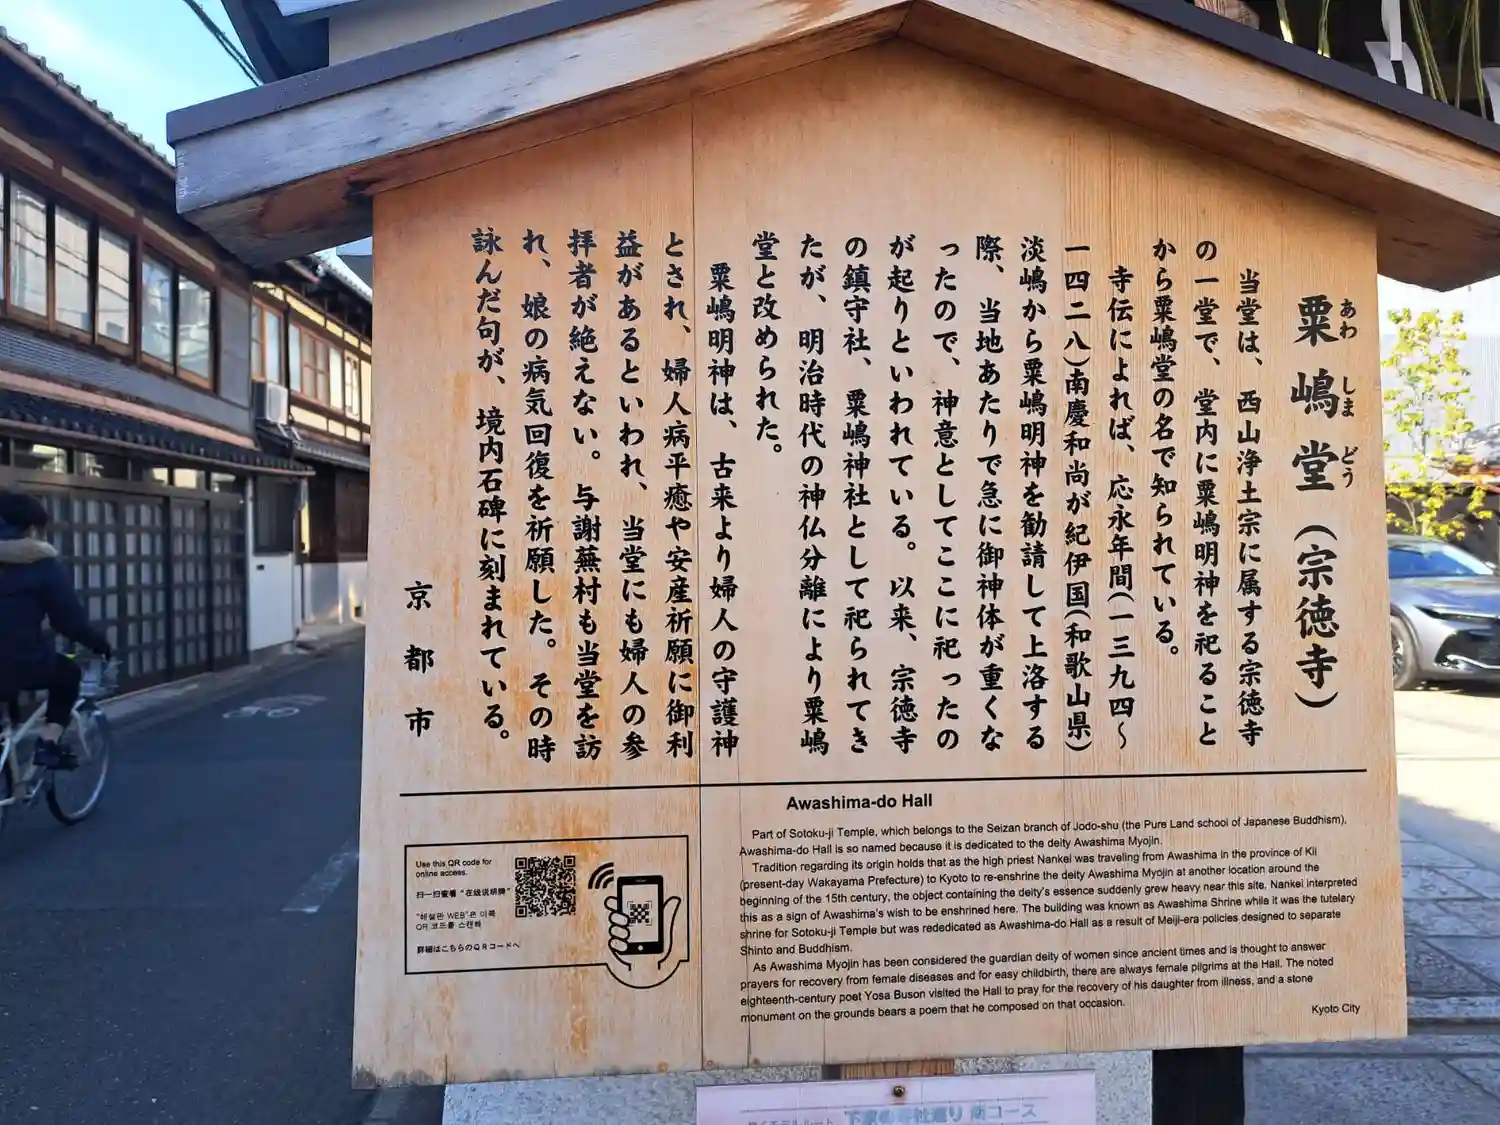 粟嶋堂（宗徳寺）
あわ しま どう
当堂は、西山浄土宗に属する宗徳寺
の一堂で、堂内に粟嶋明神を祀ること
から粟嶋堂の名で知られている。
寺伝によれば、応永年間（一三九四〜
一四二八）南慶和尚が紀伊国（和歌山県）
淡嶋から粟嶋明神を勧請して上洛する
際、当地あたりで急に御神体が重くな
ったので、神意としてここに祀ったの
が起りといわれている。以来、宗徳寺
の鎮守社、粟嶋神社として祀られてき
たが、明治時代の神仏分離により粟嶋
堂と改められた。
粟嶋明神は、古来より婦人の守護神
とされ、婦人病平癒や安産祈願に御利
益があるといわれ、当堂にも婦人の参
拝者が絶えない。与謝蕪村も当堂を訪
れ、娘の病気回復を祈願した。その時
詠んだ句が、境内石碑に刻まれている。
京都市
Awashima-do Hall
Part of Sotoku-ji Temple, which belongs to the Seizan branch of Jodo-shu (the Pure Land school of Japanese Buddhism),
Awashima-do Hall is so named because it is dedicated to the deity Awashima Myojin.
Tradition regarding its origin holds that as the high priest Nankei was traveling from Awashima in the province of Kii
(present-day Wakayama Prefecture) to Kyoto to re-enshrine the deity Awashima Myojin at another location around the
beginning of the 15th century, the object containing the deity's essence suddenly grew heavy near this site. Nankei interpreted
this as a sign of Awashima's wish to be enshrined here. The building was known as Awashima Shrine while it was the tutelary
shrine for Sotoku-ji Temple but was rededicated as Awashima-do Hall as a result of Meiji-era policies designed to separate
Shinto and Buddhism.
As Awashima Myojin has been considered the guardian deity of women since ancient times and is thought to answer
prayers for recovery from female diseases and for easy childbirth, there are always female pilgrims at the Hall. The noted
eighteenth-century poet Yosa Buson visited the Hall to pray for the recovery of his daughter from illness, and a stone
monument on the grounds bears a poem that he composed on that occasion.
Kyoto City
Use this QR code for
online access.
扫一扫查看"在线说明牌"
"해설판 WEB"은 이쪽
QR 코드를 스캔해
詳細はこちらのQRコードへ
コース